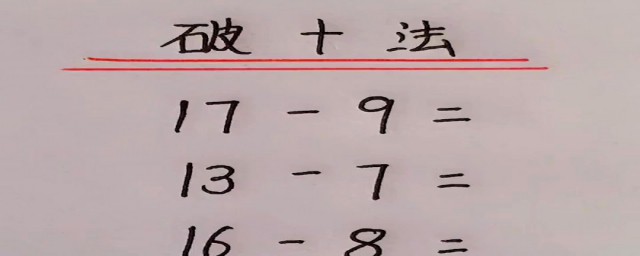 破十法
17 - 9 =
13 - 7 =
16 - 8 =